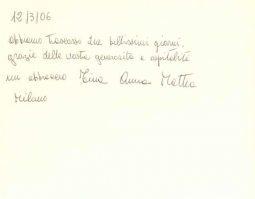 12/3/06
abbiamo trascorso due bellissimi giorni.
grazie della vostra generosità e ospitalità
un abbraccio Tina Anna Mattia
Milano